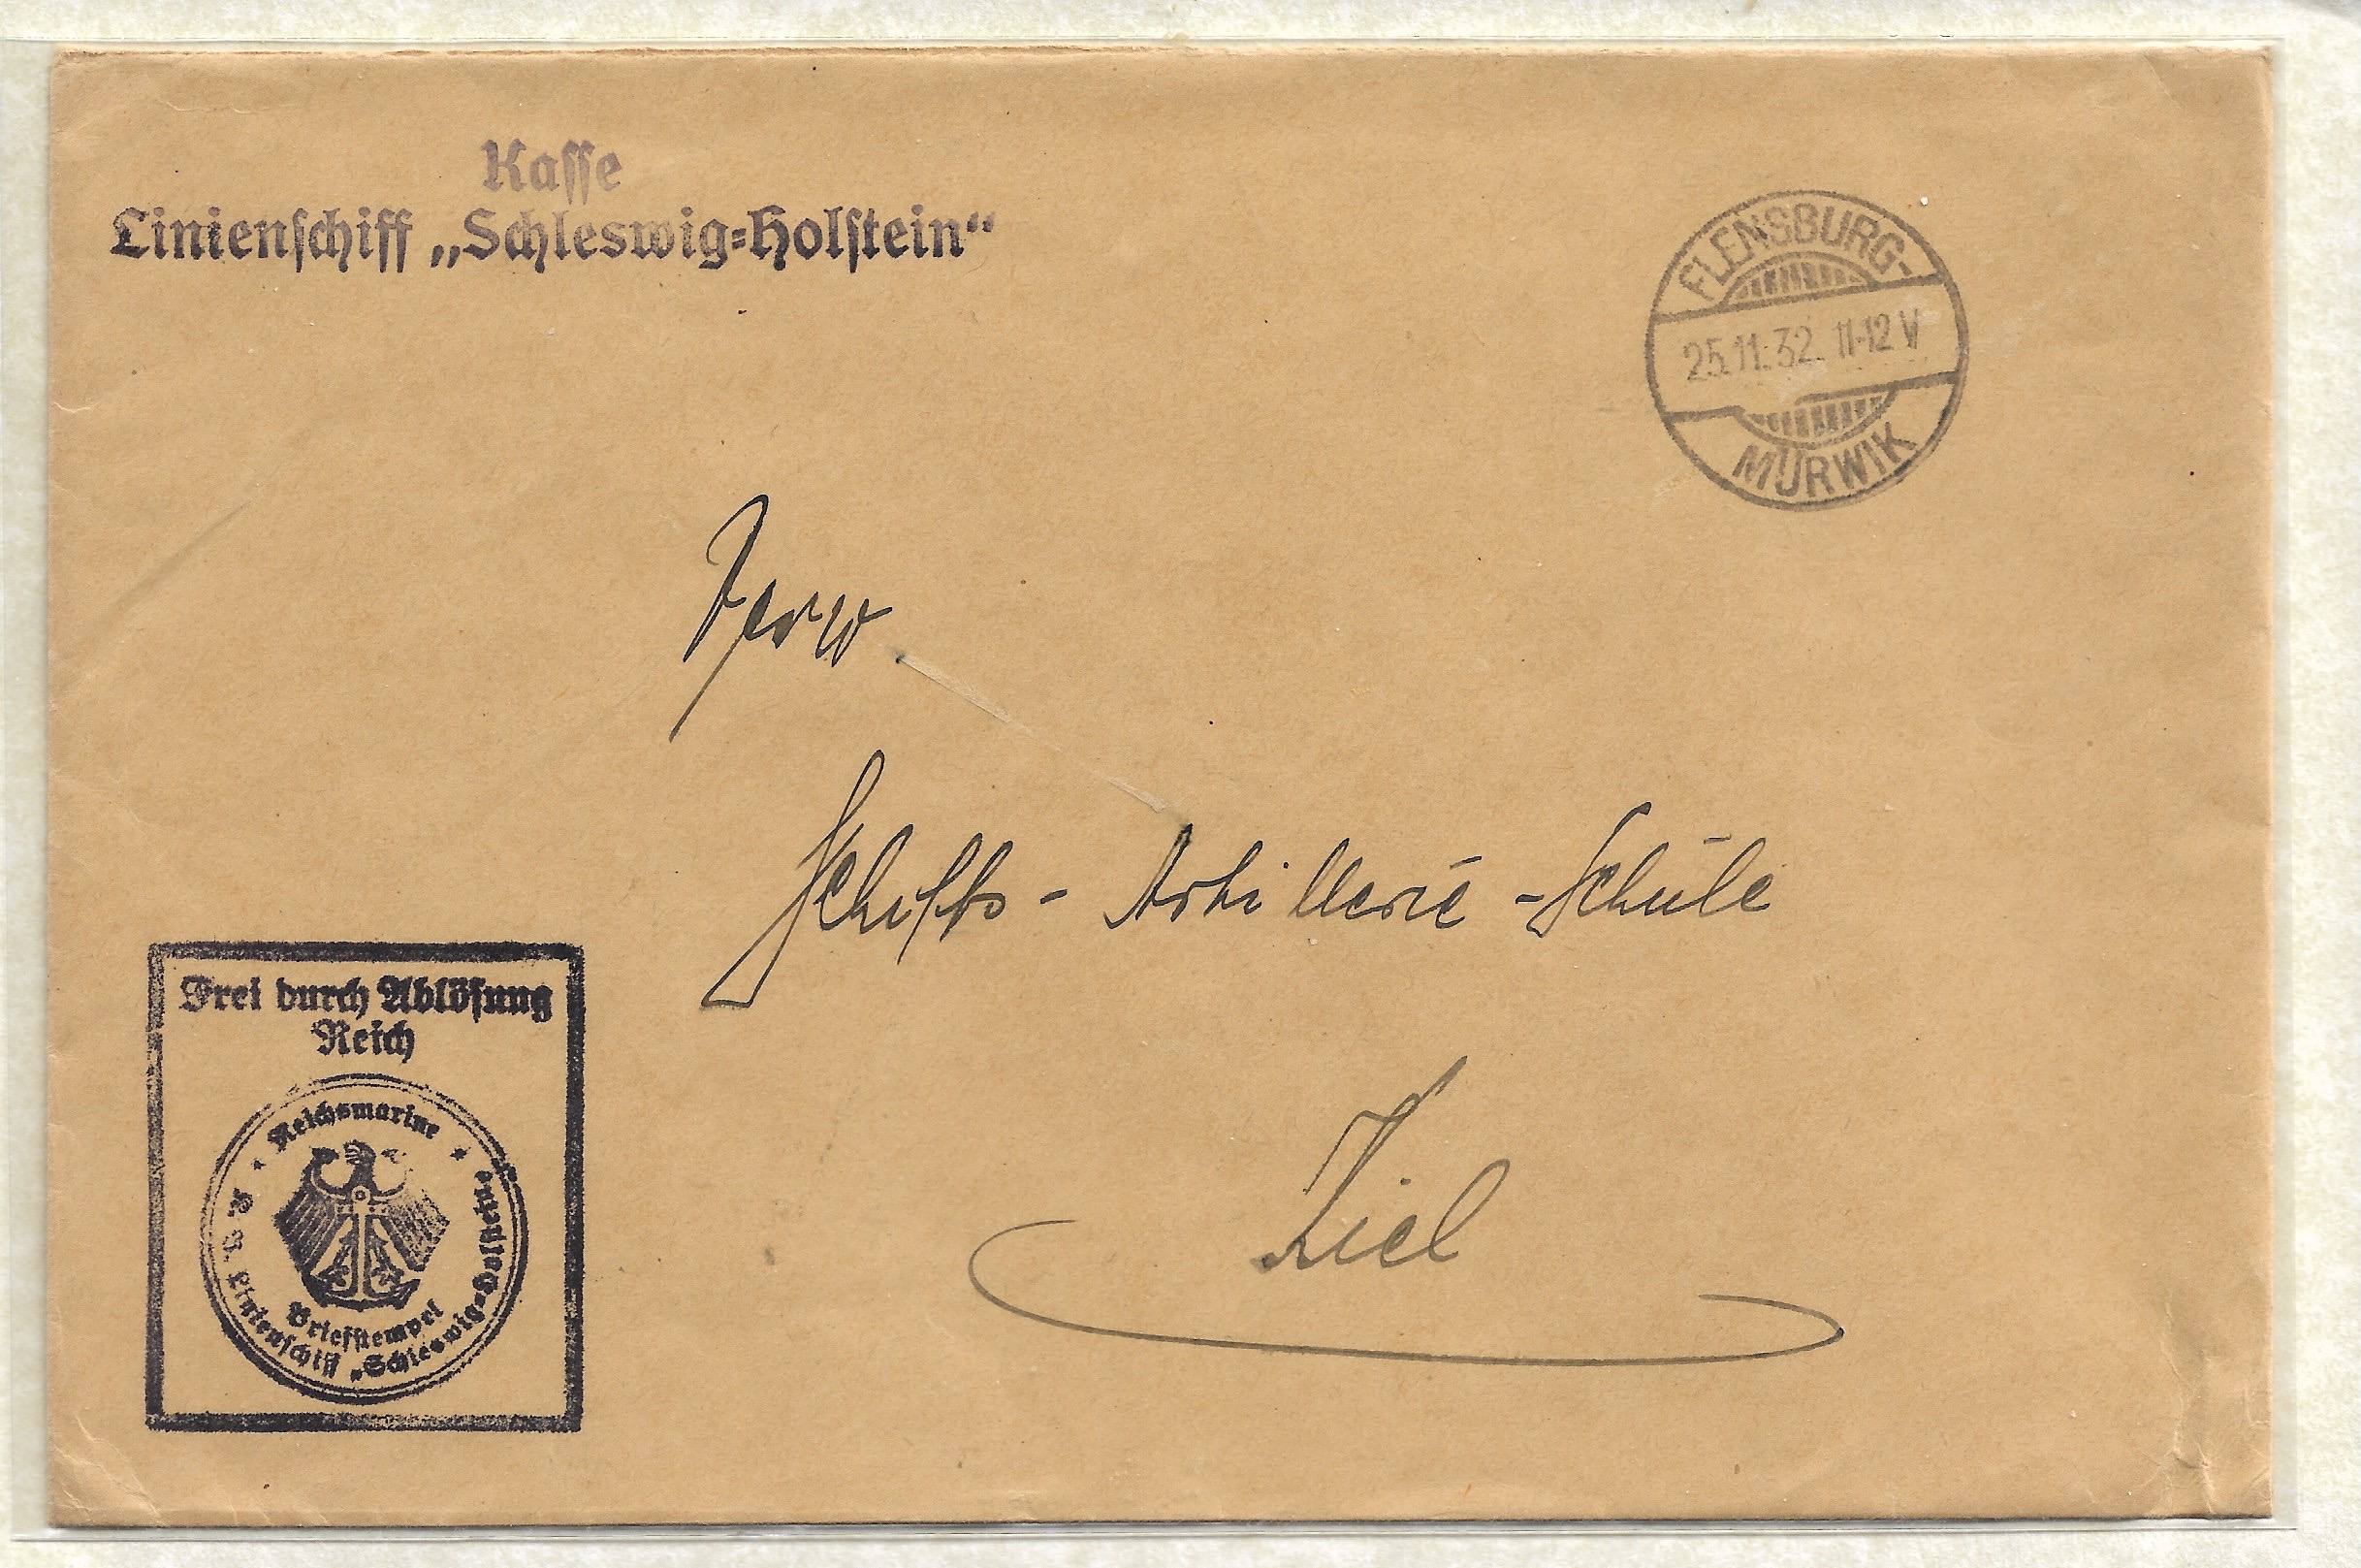 Kasse
Linienschiff „Schleswig=Holstein“
FLENSBURG-
25.11.32. 11-12 V
MÜRWIK
Verw.
Schiffs - Artillerie - Schule
Kiel
Frei durch Ablösung
Reich
Reichsmarine
Briefstempel
Linienschiff „Schleswig=Holstein“